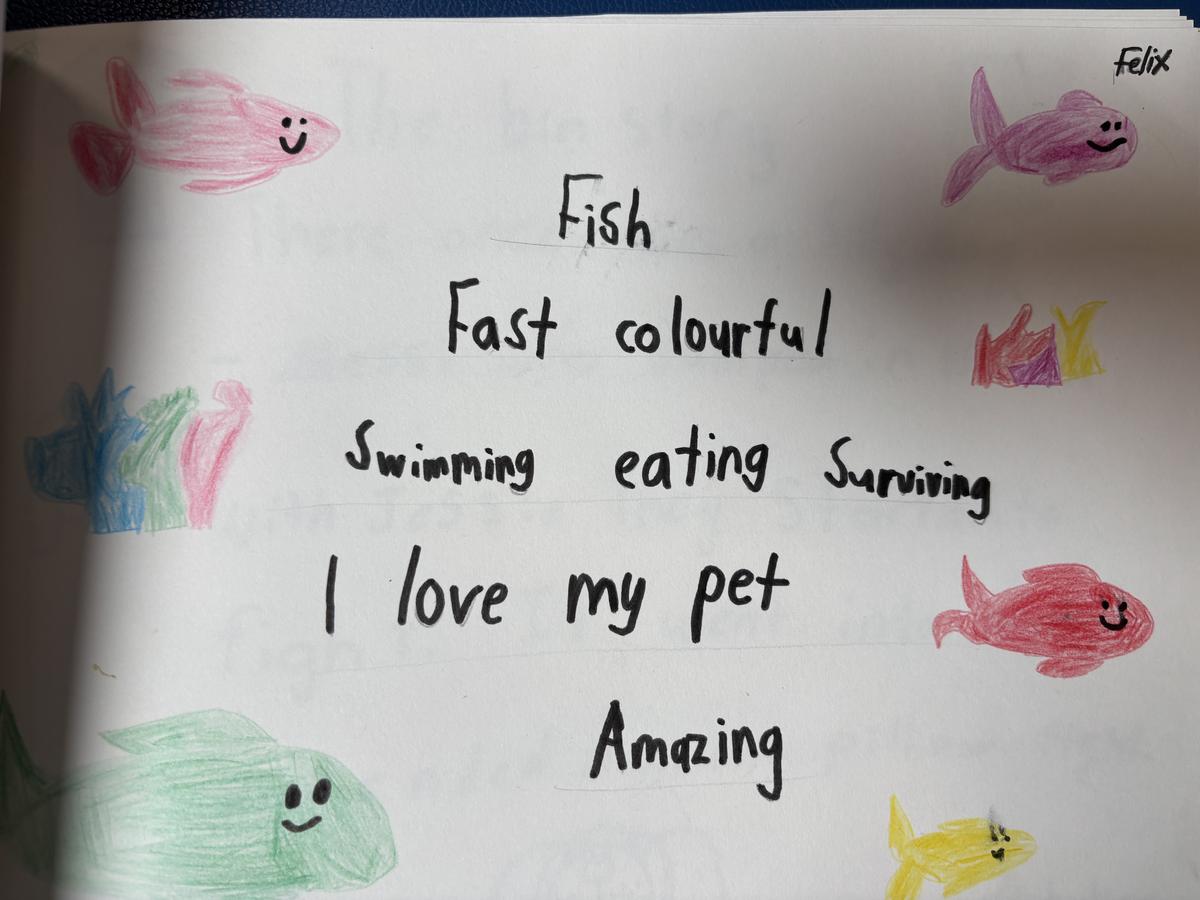 Felix
Fish
Fast colourful
Swimming eating Surviving
I love my pet
Amazing